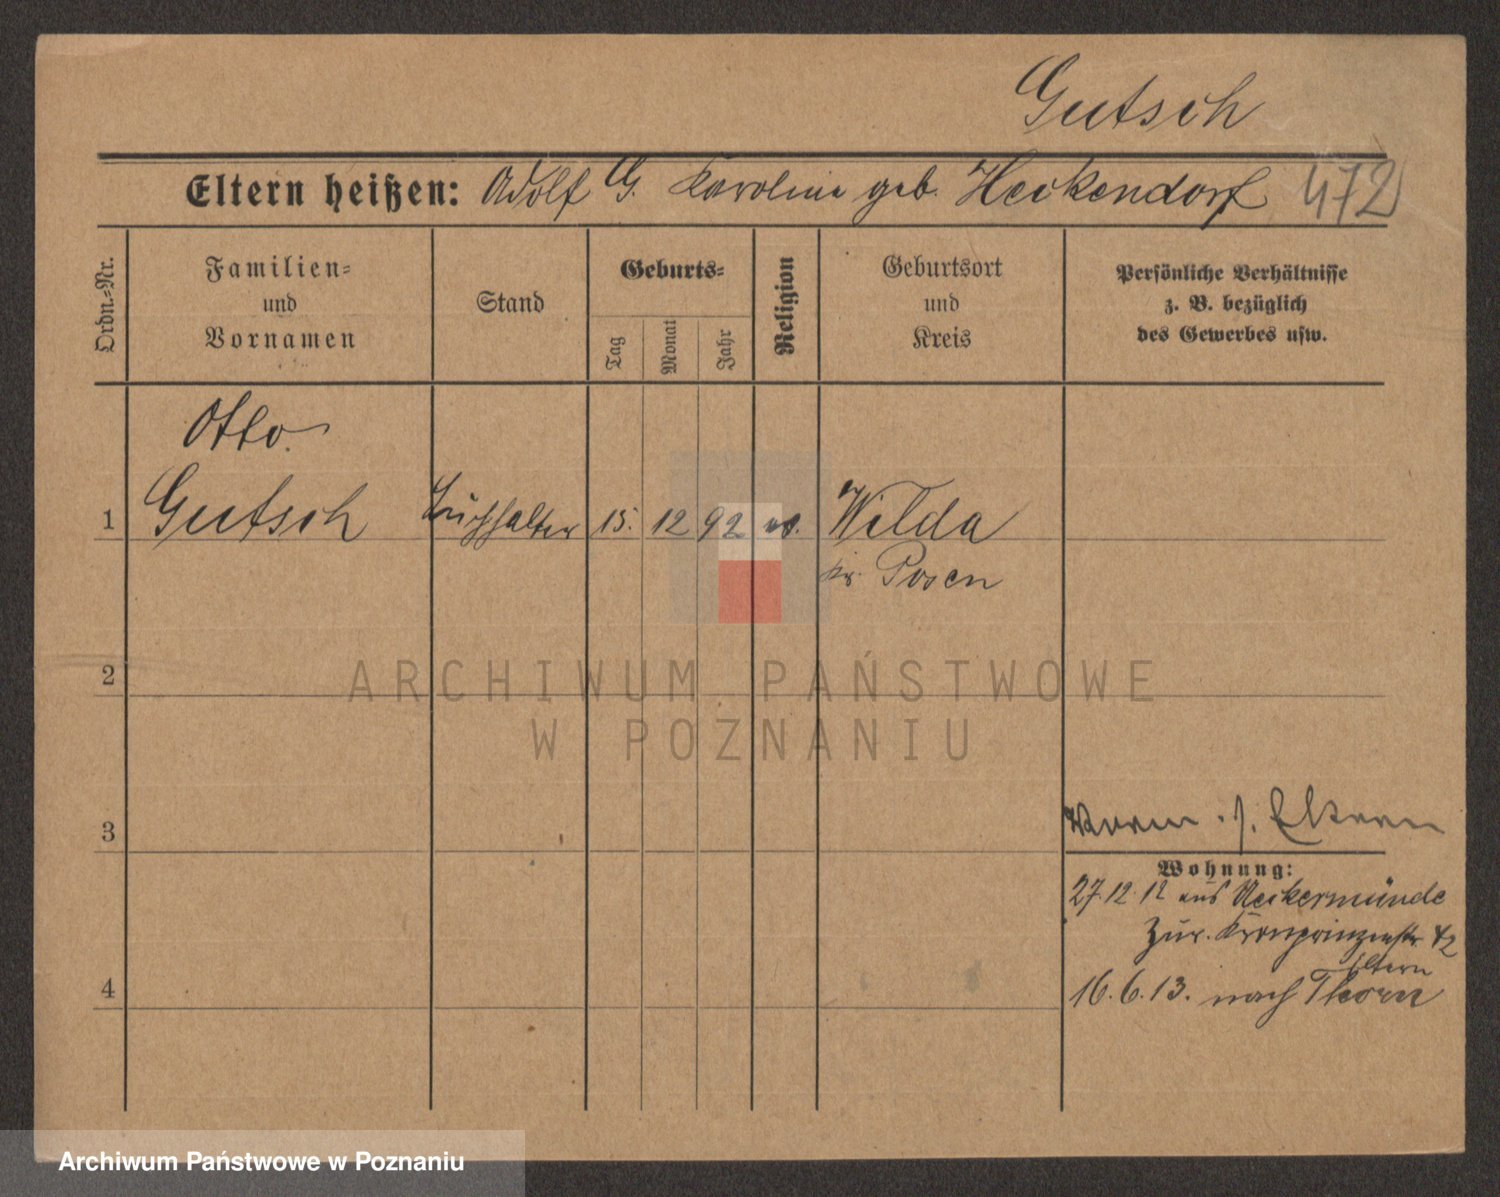 Gutsch
Eltern heißen: Adolf G. Karoline geb. Heckendorf 472
Ordn.=Nr.
Familien=
und
Vornamen
Stand
Geburts=
Tag
Monat
Jahr
Religion
Geburtsort
und
Kreis
Persönliche Verhältnisse
z. B. bezüglich
des Gewerbes usw.
Otto.
1 Gutsch Buchhalter 15. 12 92 ev. Wilda
Kr. Posen
2
ARCHIWUM PAŃSTWOWE
W POZNANIU
3
Eltern
Wohnung:
27.12.12 aus Ueckermünde
zur. Kronprinzenstr.
Eltern
4
16.6.13. nach Thorn
Archiwum Państwowe w Poznaniu